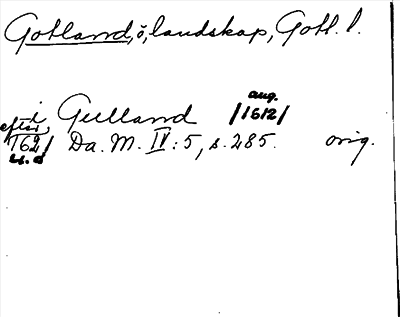 Gotland, ö, landskap, Gotl. l.
i Gulland /1612/ aug.
efter /162/ u.å Da. M. IV: 5, s. 285. orig.